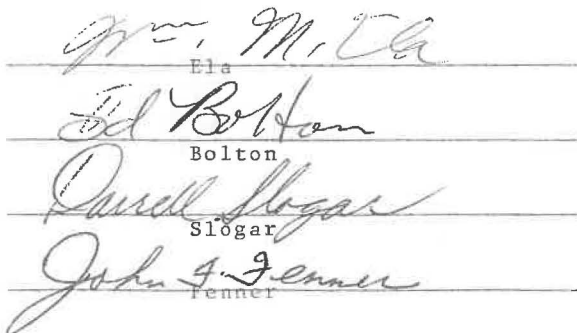 Wm. M. Ela
Ela
Ed Bolton
Bolton
Darrell Slogar
Slogar
John F. Fenner
Fenner